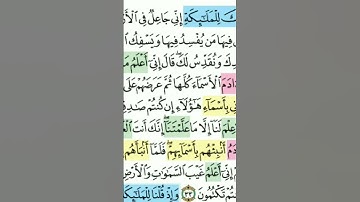 كَ لِلْمَلَٰٓئِكَةِ إِنِّي جَاعِلٌ فِي ٱلْأَرْ
فِيهَا مَن يُفْسِدُ فِيهَا وَيَسْفِكُ
وَنُقَدِّسُ لَكَ قَالَ إِنِّيٓ أَعْلَمُ مَ
ادَمَ ٱلْأَسْمَآءَ كُلَّهَا ثُمَّ عَرَضَهُمْ عَلَى
نِي بِأَسْمَآءِ هَٰٓؤُلَآءِ إِن كُنتُمْ صَٰدِقِ
عِلْمَ لَنَآ إِلَّا مَا عَلَّمْتَنَآ إِنَّكَ أَنتَ ٱلْعَ
ادَمُ أَنۢبِئْهُم بِأَسْمَآئِهِمْ فَلَمَّآ أَنۢبَأَهُم
إِنِّيٓ أَعْلَمُ غَيْبَ ٱلسَّمَٰوَٰتِ وَٱلْأَرْضِ
تُمْ تَكْتُمُونَ ٣٣ وَإِذْ قُلْنَا لِلْمَلَٰٓئِكَ